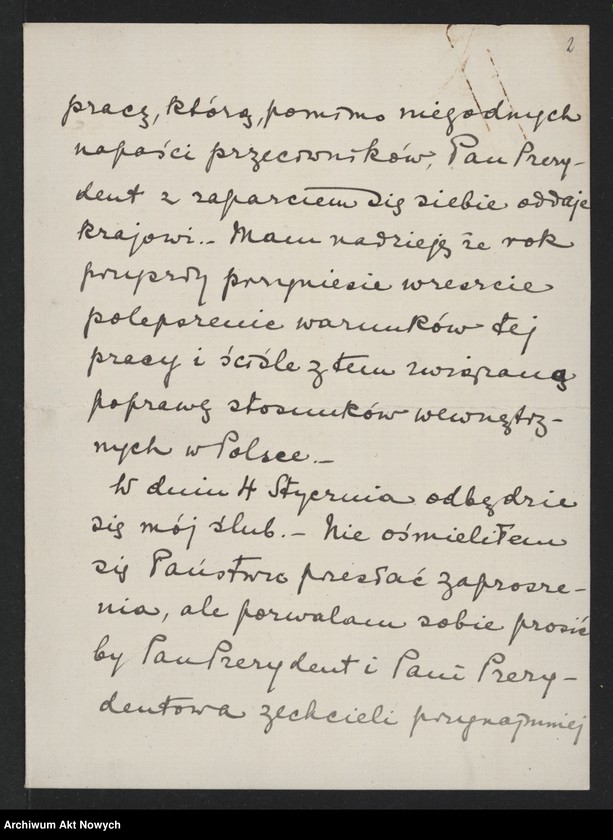 2
pracą, którą, pomimo niegodnych
napaści przeciwników, Pan Prezy-
dent z zaparciem się siebie oddaje
krajowi. – Mam nadzieję że rok
przyszły przyniesie wreszcie
polepszenie warunków tej
pracy i ściśle z tem związaną
poprawę stosunków wewnętrz-
nych w Polsce. –
W dniu 4 Stycznia odbędzie
się mój ślub. – Nie ośmieliłem
się Państwu przesłać zaprosze-
nia, ale pozwalam sobie prosić
by Pan Prezydent i Pani Prezy-
dentowa zechcieli przynajmniej
Archiwum Akt Nowych